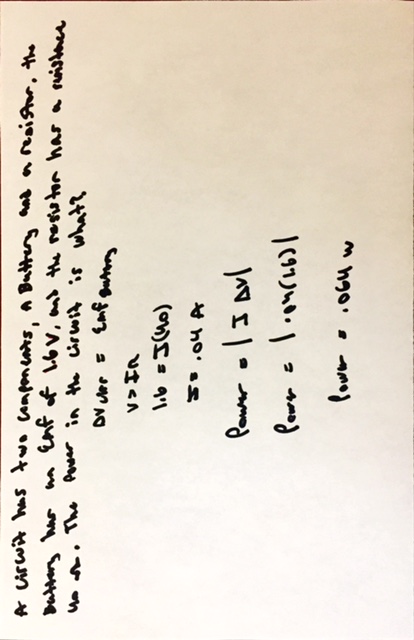 A circuit has two components, a Battery and a resistor, the
Battery has an Emf of 1.6V, and the resistor has a resistance
40 Ω. The Power in the circuit is what?
ΔV = Emf Battery
V = IR
1.6 = I(40)
I = .04 A
Power = | I ΔV |
Power = | .04(1.6) |
Power = .064 W